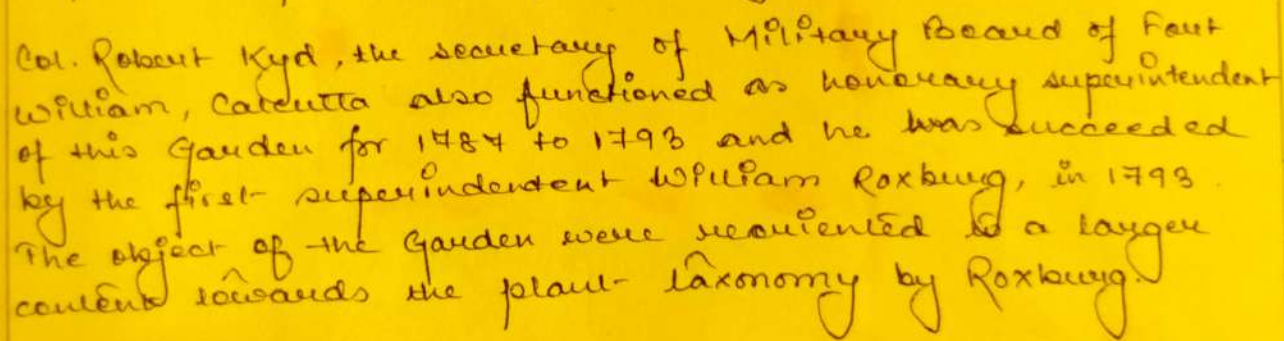 Col. Robert Kyd, the secretary of Military Board of Fort
William, Calcutta also functioned as honorary superintendent
of this Garden for 1787 to 1793 and he was succeeded
by the first superindendent William Roxburg, in 1793.
The object of the Garden were reoriented to a larger
content towards the plant taxonomy by Roxburg.